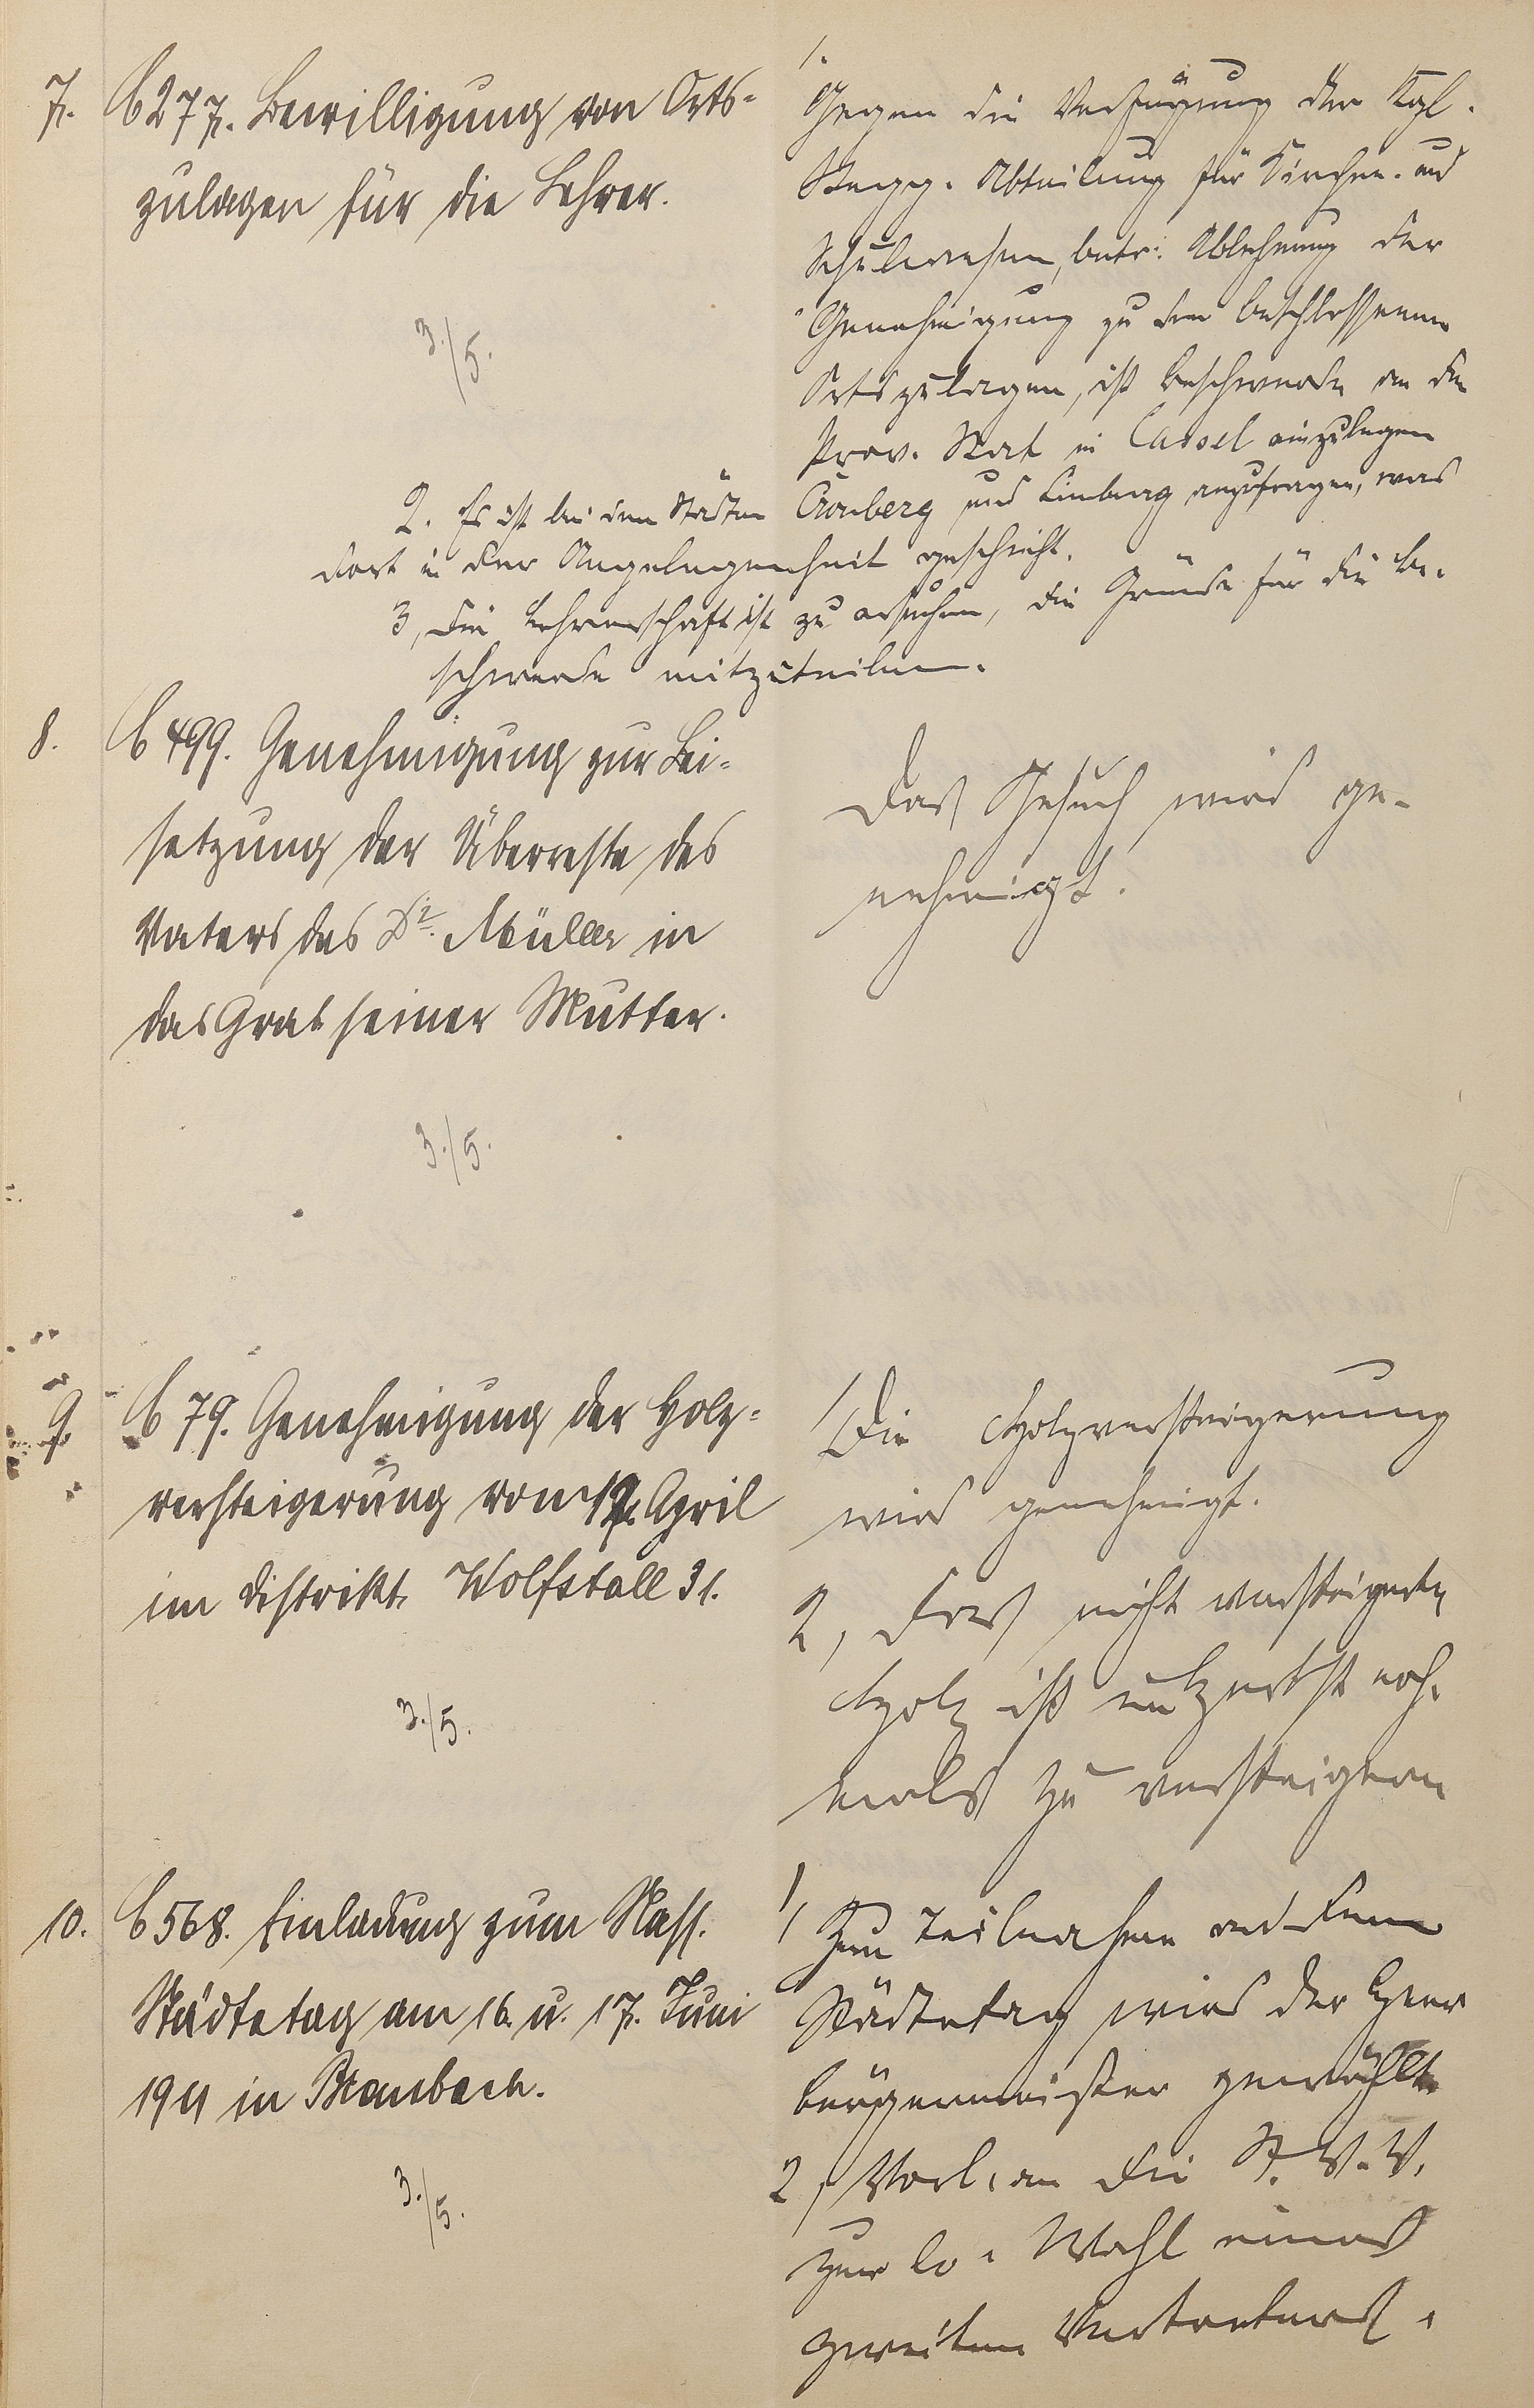 7. C 277. Bewilligung von Orts-
zulagen für die Lehrer.
3./5.
1.
Gegen die Verfügung der Kgl.
Regg. Abteilung für Kirchen- und
Schulwesen, betr: Ablehnung der
Genehmigung zu den beschlossenen
Ortszulagen, ist Beschwerde an den
Prov. Rat in Cassel einzulegen
2. Es ist bei den Städten Cronberg und Limburg anzufragen, was
dort in der Angelegenheit geschieht.
3, Die Lehrerschaft ist zu ersuchen, die Gründe für die Be-
schwerde mitzuteilen.
8. C 499. Genehmigung zur Bei-
setzung der Überreste des
Vaters des Dr. Müller in
das Grab seiner Mutter.
3./5.
Das Gesuch wird ge-
nehmigt.
9. C 79. Genehmigung der Holz-
versteigerung vom April
im Distrikt Wolfstall 31.
3./5.
1/ Die Holzversteigerung
wird genehmigt.
2, Das nicht versteigerte
Holz ist noch-
mals zu versteigern
10. C 568. Einladung zum Nass.
Städtetag am 16. u. 17. Juni
1911 in Braubach.
3./5.
1/ Zur Teilnahme an dem
Städtetag wird der Herr
Bürgermeister gewählt
2, Vorl. an die St. V. V.
zur Wahl eines
zweiten Vertreters.